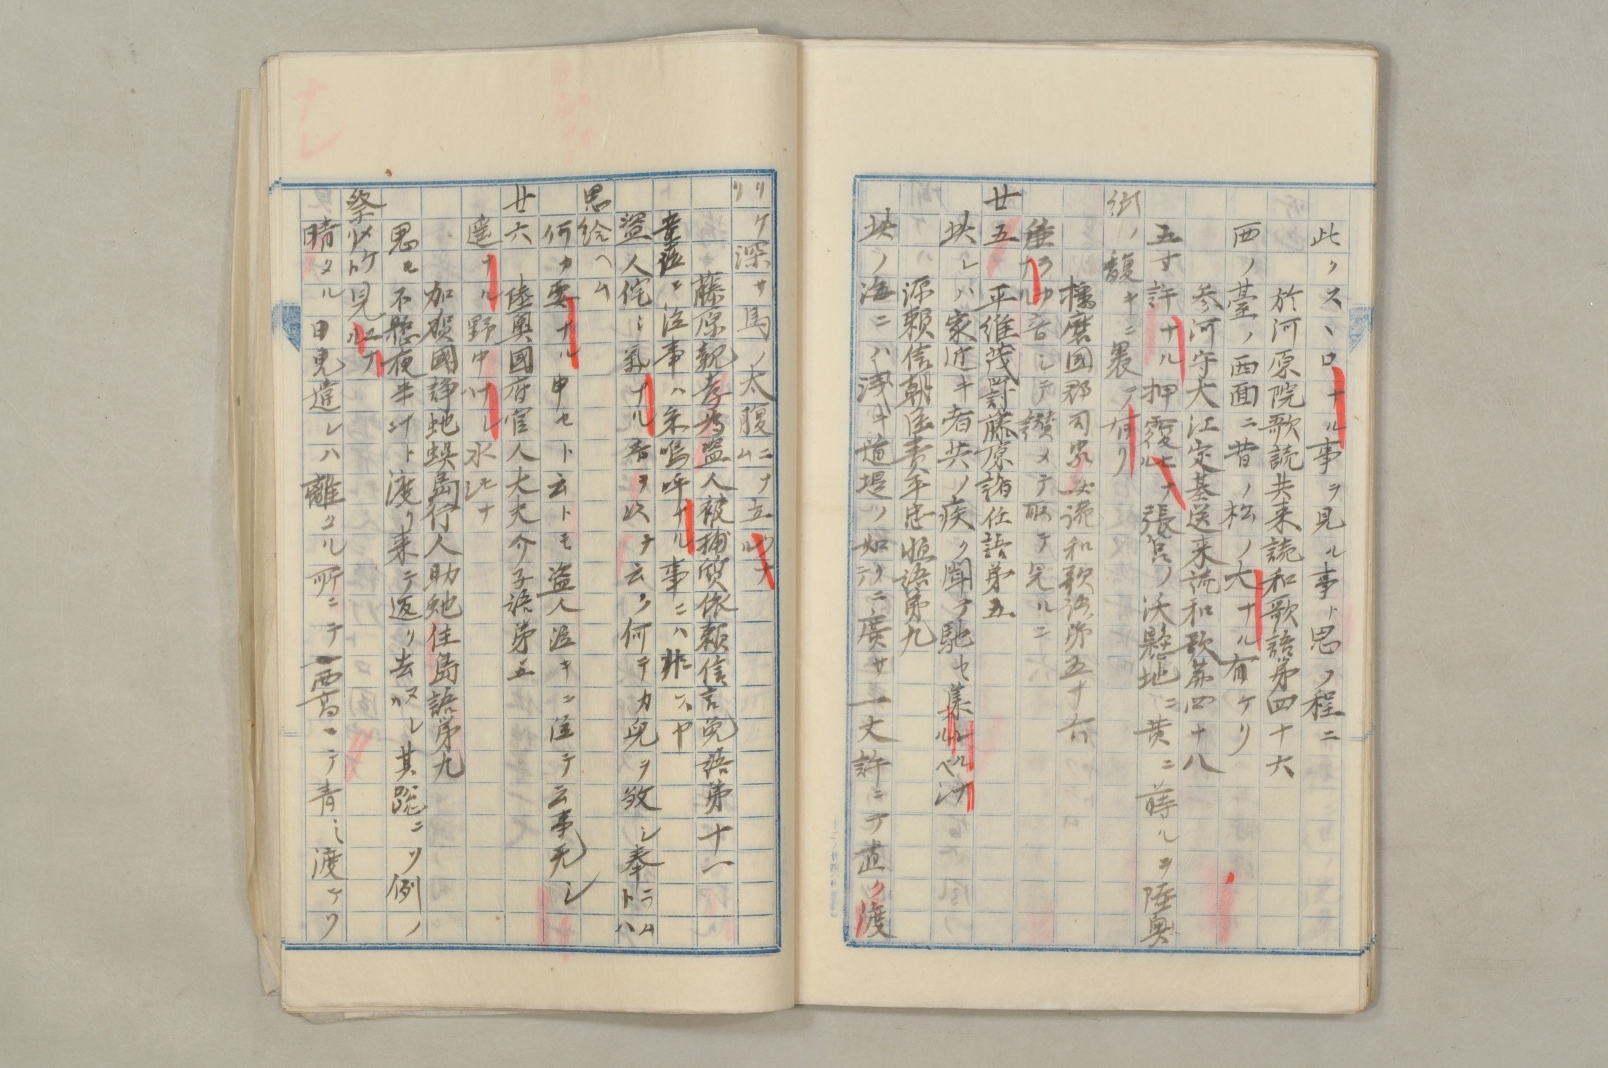 此クスヽロナル事ヲ見ル事ト思フ程ニ
於河原院歌読共来読和歌語第四十六
西ノ臺ノ西面ニ昔ノ松ノ大ナル有ケリ
参河守大江定基送来読和歌第四十八
五寸許ナル押覆ヒナ張筥ノ沃懸地ニ黄ニ蒔ルヲ陸奥
ノ馥キニ裹テ有リ
播磨国郡司家女読和歌語第五十六
音シテ讃メテ取テ見ルニ
廿五 平維茂罸藤原諸任語第五
焼レハ家近キ者共ノ疾ク聞テ馳セ集ルベケ
源頼信朝臣責平忠恒語第九
ノ海ニハ浅キ道堤ノ如クニ廣サ一丈許ニテ直ク渡
リケ深サ馬ノ太腹ニナ立ルナ
藤原親孝為盗人被捕質依頼信言免語第十一
泣事ハ嗚呼ナル事ニハ非スヤ
盗人侘シ氣ナル音ヲ以テ云ク何テカ児ヲ敢シ奉ラムトハ
思給ヘム
何カ要ナル申セト云トモ盗人泣キニ泣テ云事无シ
廿六 陸奥國府官人大夫介子語第五
遥ナル野中ナレハ水モナ
加賀國諍蛇蜈島行人助蛇住島語第九
思モ不懸夜半ナト渡リ来テ返リ去ヌレ其跡ニソ例ノ
祭ケリト見ルナ
晴タル日見遣レハ離タル所ニテ西高ニテ青ミ渡テソ